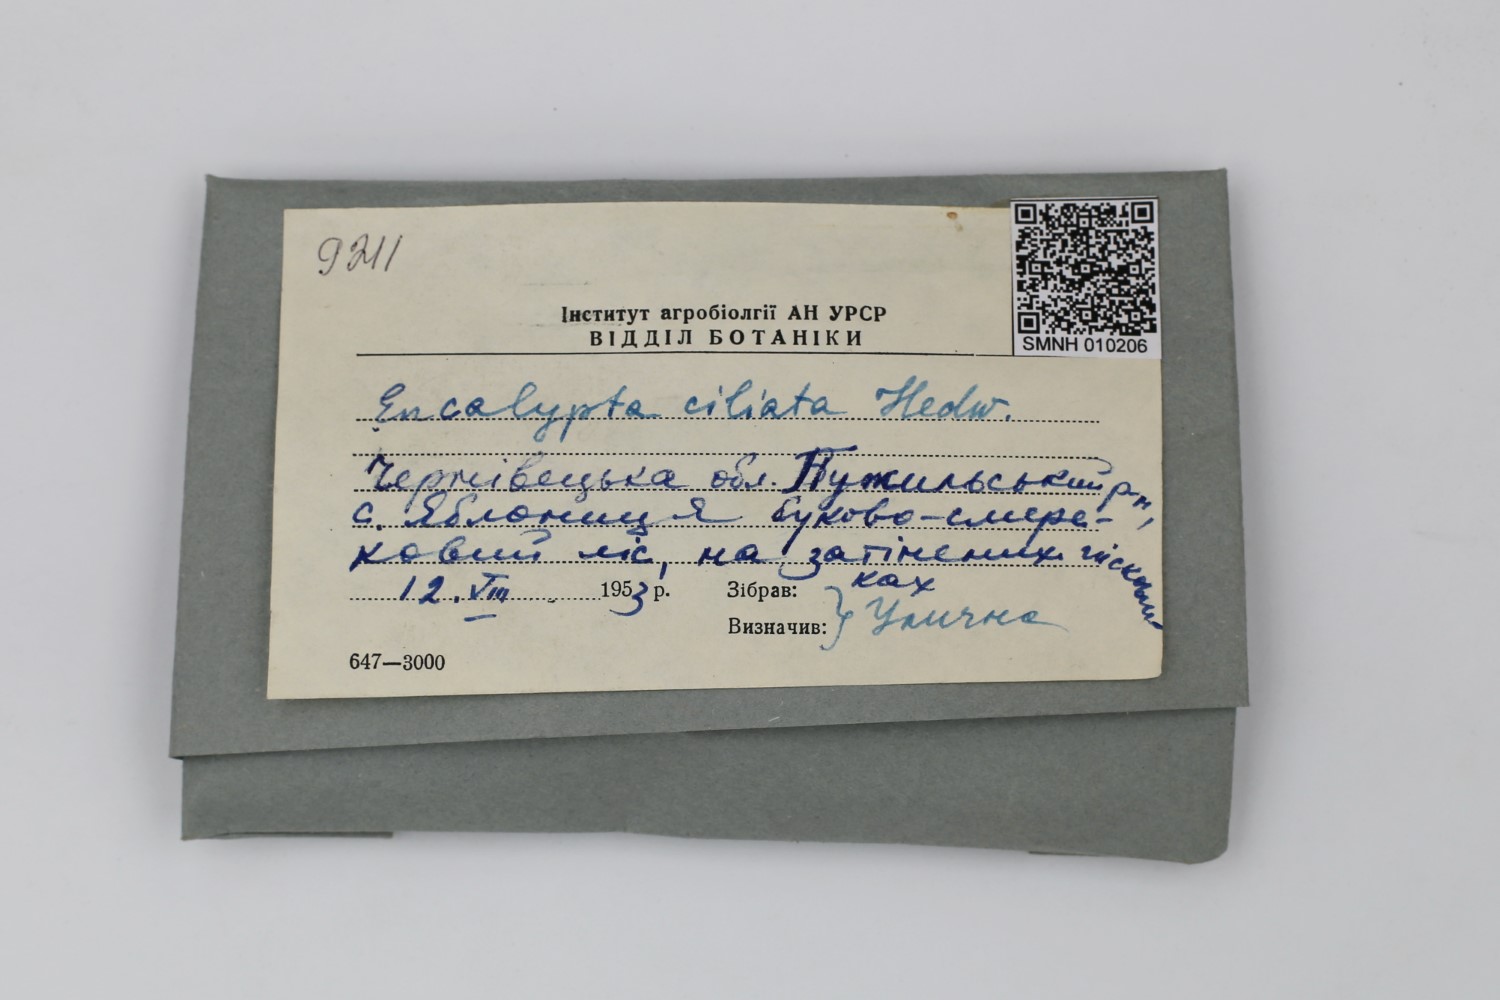 9211
SMNH 010206
Інститут агробіолгії АН УРСР
ВІДДІЛ БОТАНІКИ
Encalypta ciliata Hedw.
Чернівецька обл. Пужильський р-н,
с. Яблониця буково-смере-
ковий ліс, на затінених пісковиках
12. VIII 1953 р. Зібрав:
Визначив: } Улична
647—3000